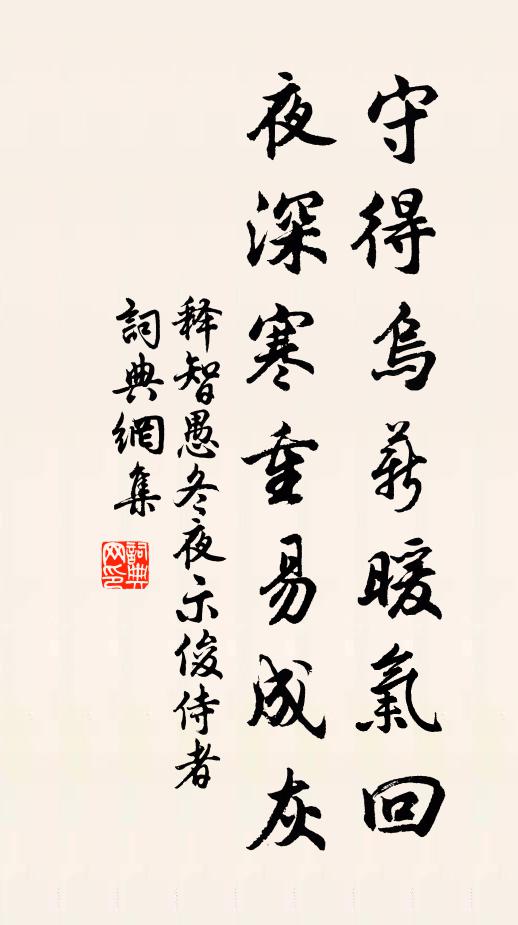 守得烏薪暖氣回
夜深寒重易成灰
释智愚冬夜示俊侍者
詞典網集
詞典网印